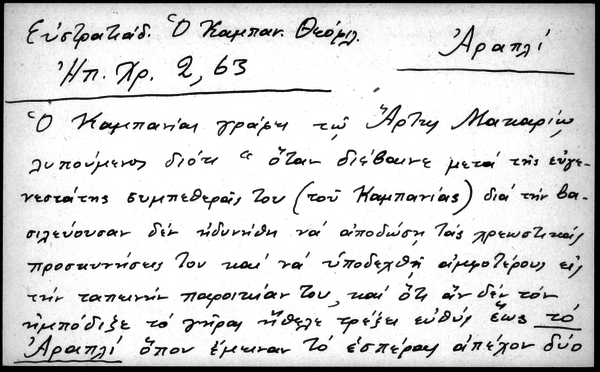 Εὐστρατιάδ. Ὁ Καμπαν. Θεόφιλ.
Ἀραπλί
Ἠπ. Χρ. 2, 63
Ὁ Καμπανίας γράφει τῷ Ἄρτης Μακαρίῳ,
λυπούμενος διότι "ὅταν διέβαινε μετά τῆς εὐγε-
νεστάτης συμπεθερᾶς του (τοῦ Καμπανίας) διά τήν βα-
σιλεύουσαν δέν ἠδυνήθη νά ἀποδώσῃ τάς χρεωστικάς
προσκυνήσεις του καί νά ὑποδεχθῇ ἀμφοτέρους εἰς
τήν ταπεινήν παροικίαν του, καί ὅτι ἄν δέν τόν
ἠμπόδιζε τό γῆρας ἤθελε τρέξει εὐθύς ἕως τό
Ἀραπλί ὅπου ἔμειναν τό ἑσπέρας ἀπέχον δύο